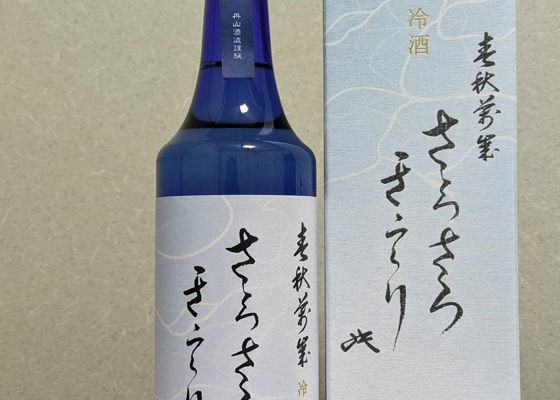 丹山酒造謹醸
春秋萬歳
冷
さらさら
きらり
冷酒
春秋萬歳
さらさら
きらり